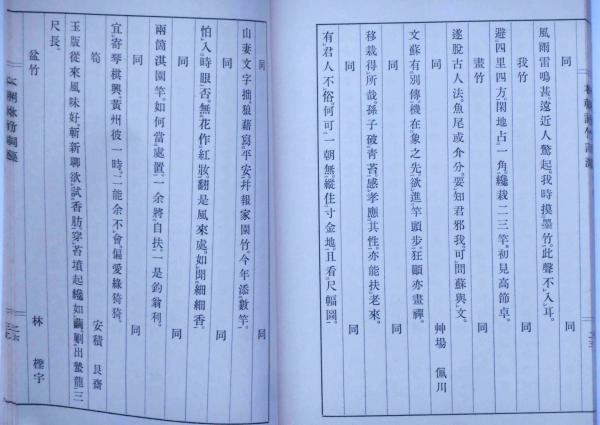 同 同
風雨雷鳴甚。遠近人驚起。我時摸墨竹。此聲不入耳。
我竹 同
避四里四方。閑地占一角。纔栽一二三竿。初見高節卓。
畫竹 同
遂脫古人法。魚尾或介分。要知君邪我。可問蘇與文。
同 艸場 佩川
文蘇有別傳。機在象之先。欲進竿頭步。狂顧亦畫禪。
同 同
移栽得所哉。孫子破青苔。感孝應其性。亦能扶老來。
同 同
有君人不俗。何可一朝無。縱住寸金地。且看尺幅圖。
同 同
山妻文字拙。狼藉寫平安。幷報家園竹。今年添數竿。
同 同
怕入時眼否。無花作紅妝。翻是風來處。如聞細細香。
同 同
兩箇淇園竿。如何當處置。一余將自扶。一是釣翁利。
同 同
宜寄琴棋興。黃州彼一時。二能余不會。偏愛綠猗猗。
筍 安積 艮齋
玉版從來風味好。斬新聊欲試香肪。穿苔墳起纔如繭。劚出蟄龍三
尺長。
盆竹 林 檉宇